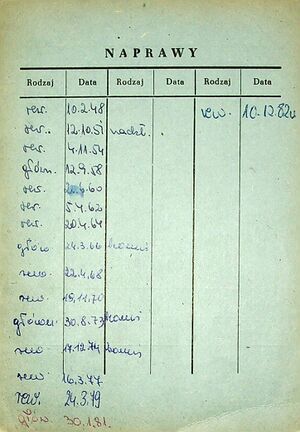 NAPRAWY
Rodzaj Data Rodzaj Data Rodzaj Data
rew. 10.2.48 rew. 10.12.82
rew. 12.10.51
rew. 4.11.54
główn. 12.9.58
rew. 6.60
rew. 5.4.62
rew. 20.4.64
główn. 24.3.66
rew 22.4.68
rew 19.11.70
główn. 30.8.73
rew 17.12.74
rew 16.3.77
rew. 24.3.79
głów. 30.1.81.